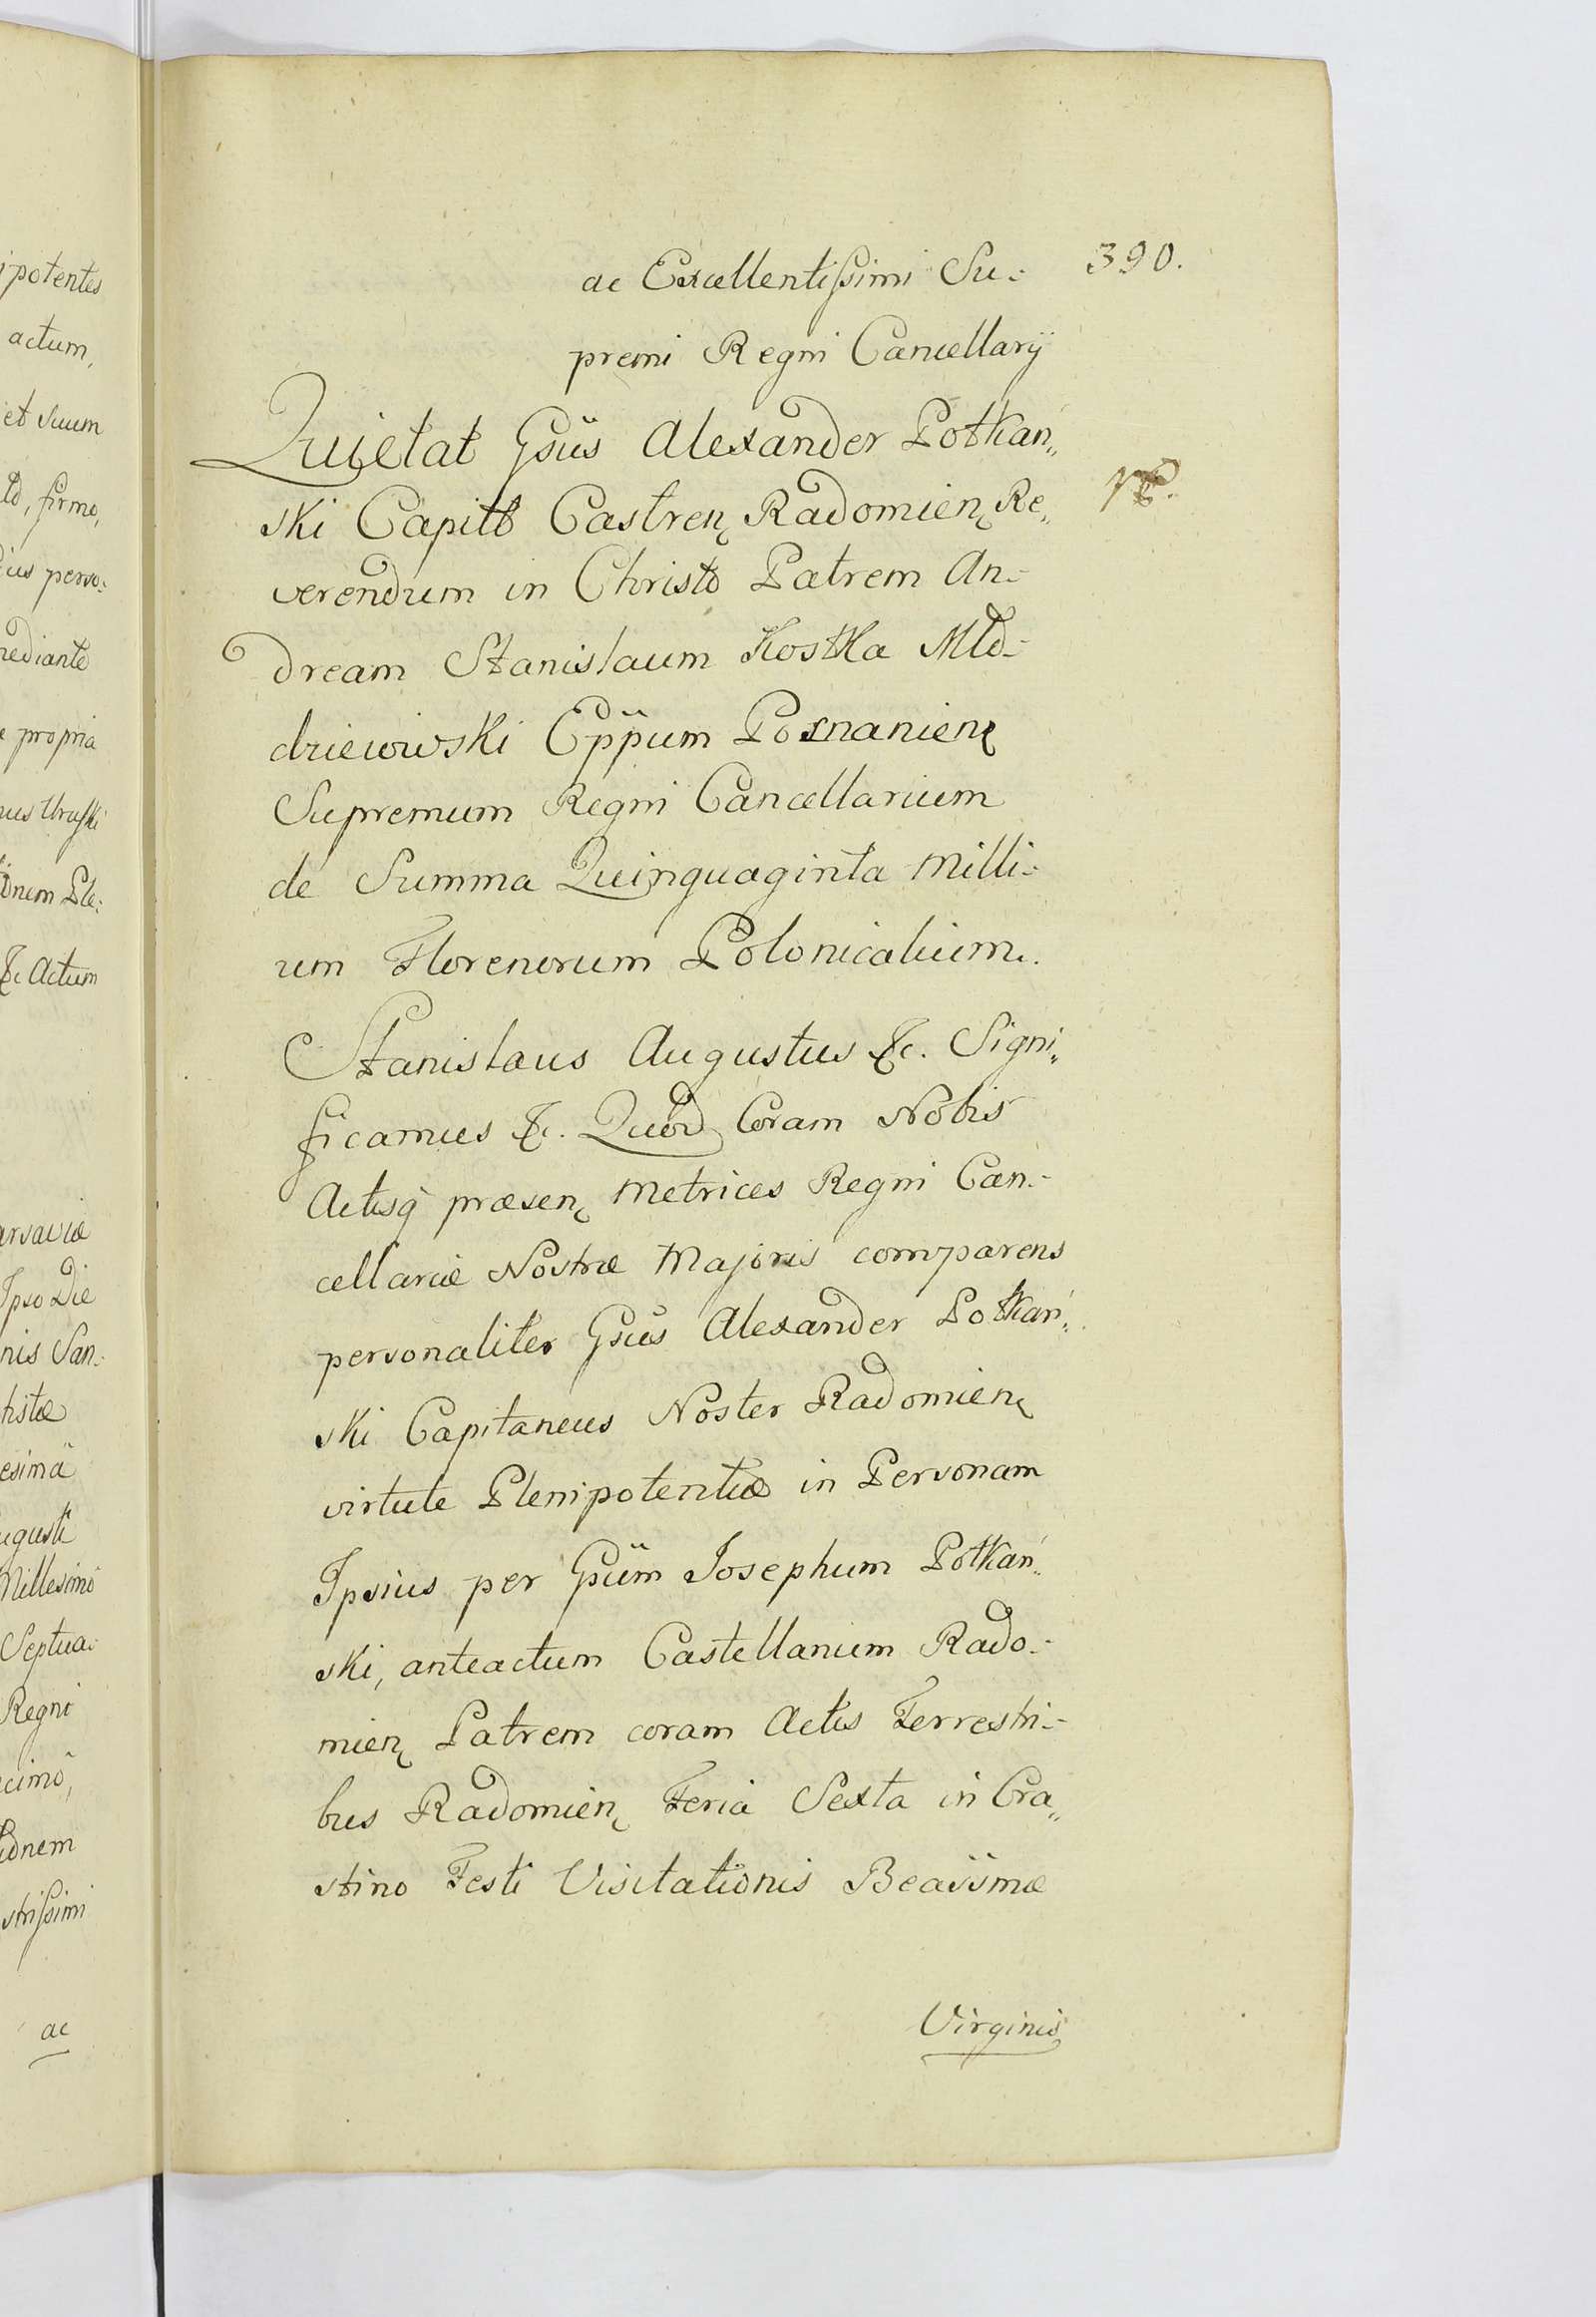 potentes
actum,
et suum
firmo,
ius perso:
mediante
propria
nus Uruski
onem Ple:
&c. Actum
arsaviæ
Ipso Die
nis San:
tistæ
esimâ
ugusti
Millesimô
Septua:
Regni
ecimô,
tionem
strißimi
ac
390.
ac Excellentißimi Su:
premi Regni Cancellarÿ
Quietat Gsüs Alexander Potkań„
ski Capitō Castren Radomien Re„
verendum in Christo Patrem An:
dream Stanislaum Kostka Mło:
dziewiwski Eppum Poznanien
Supremum Regni Cancellarium
de Summa Quinquaginta Milli:
um Florenorum Polonicalium.
Stanislaus Augustus &c. Signi„
ficamus &c. Quod Coram Nobis
Actisq præsen Metrices Regni Can:
cellariæ Nostræ Majoris comparens
personaliter Gsüs Alexander Potkań„
ski Capitaneus Noster Radomien
virtute Plenipotentiæ in Personam
Ipsius per Gsüm Josephum Potkań„
ski, anteactum Castellanum Rado:
mien Patrem coram Actis Terrestri:
bus Radomien Feria Sexta in Cra„
stino Festi Visitationis Beassmæ
Virginis